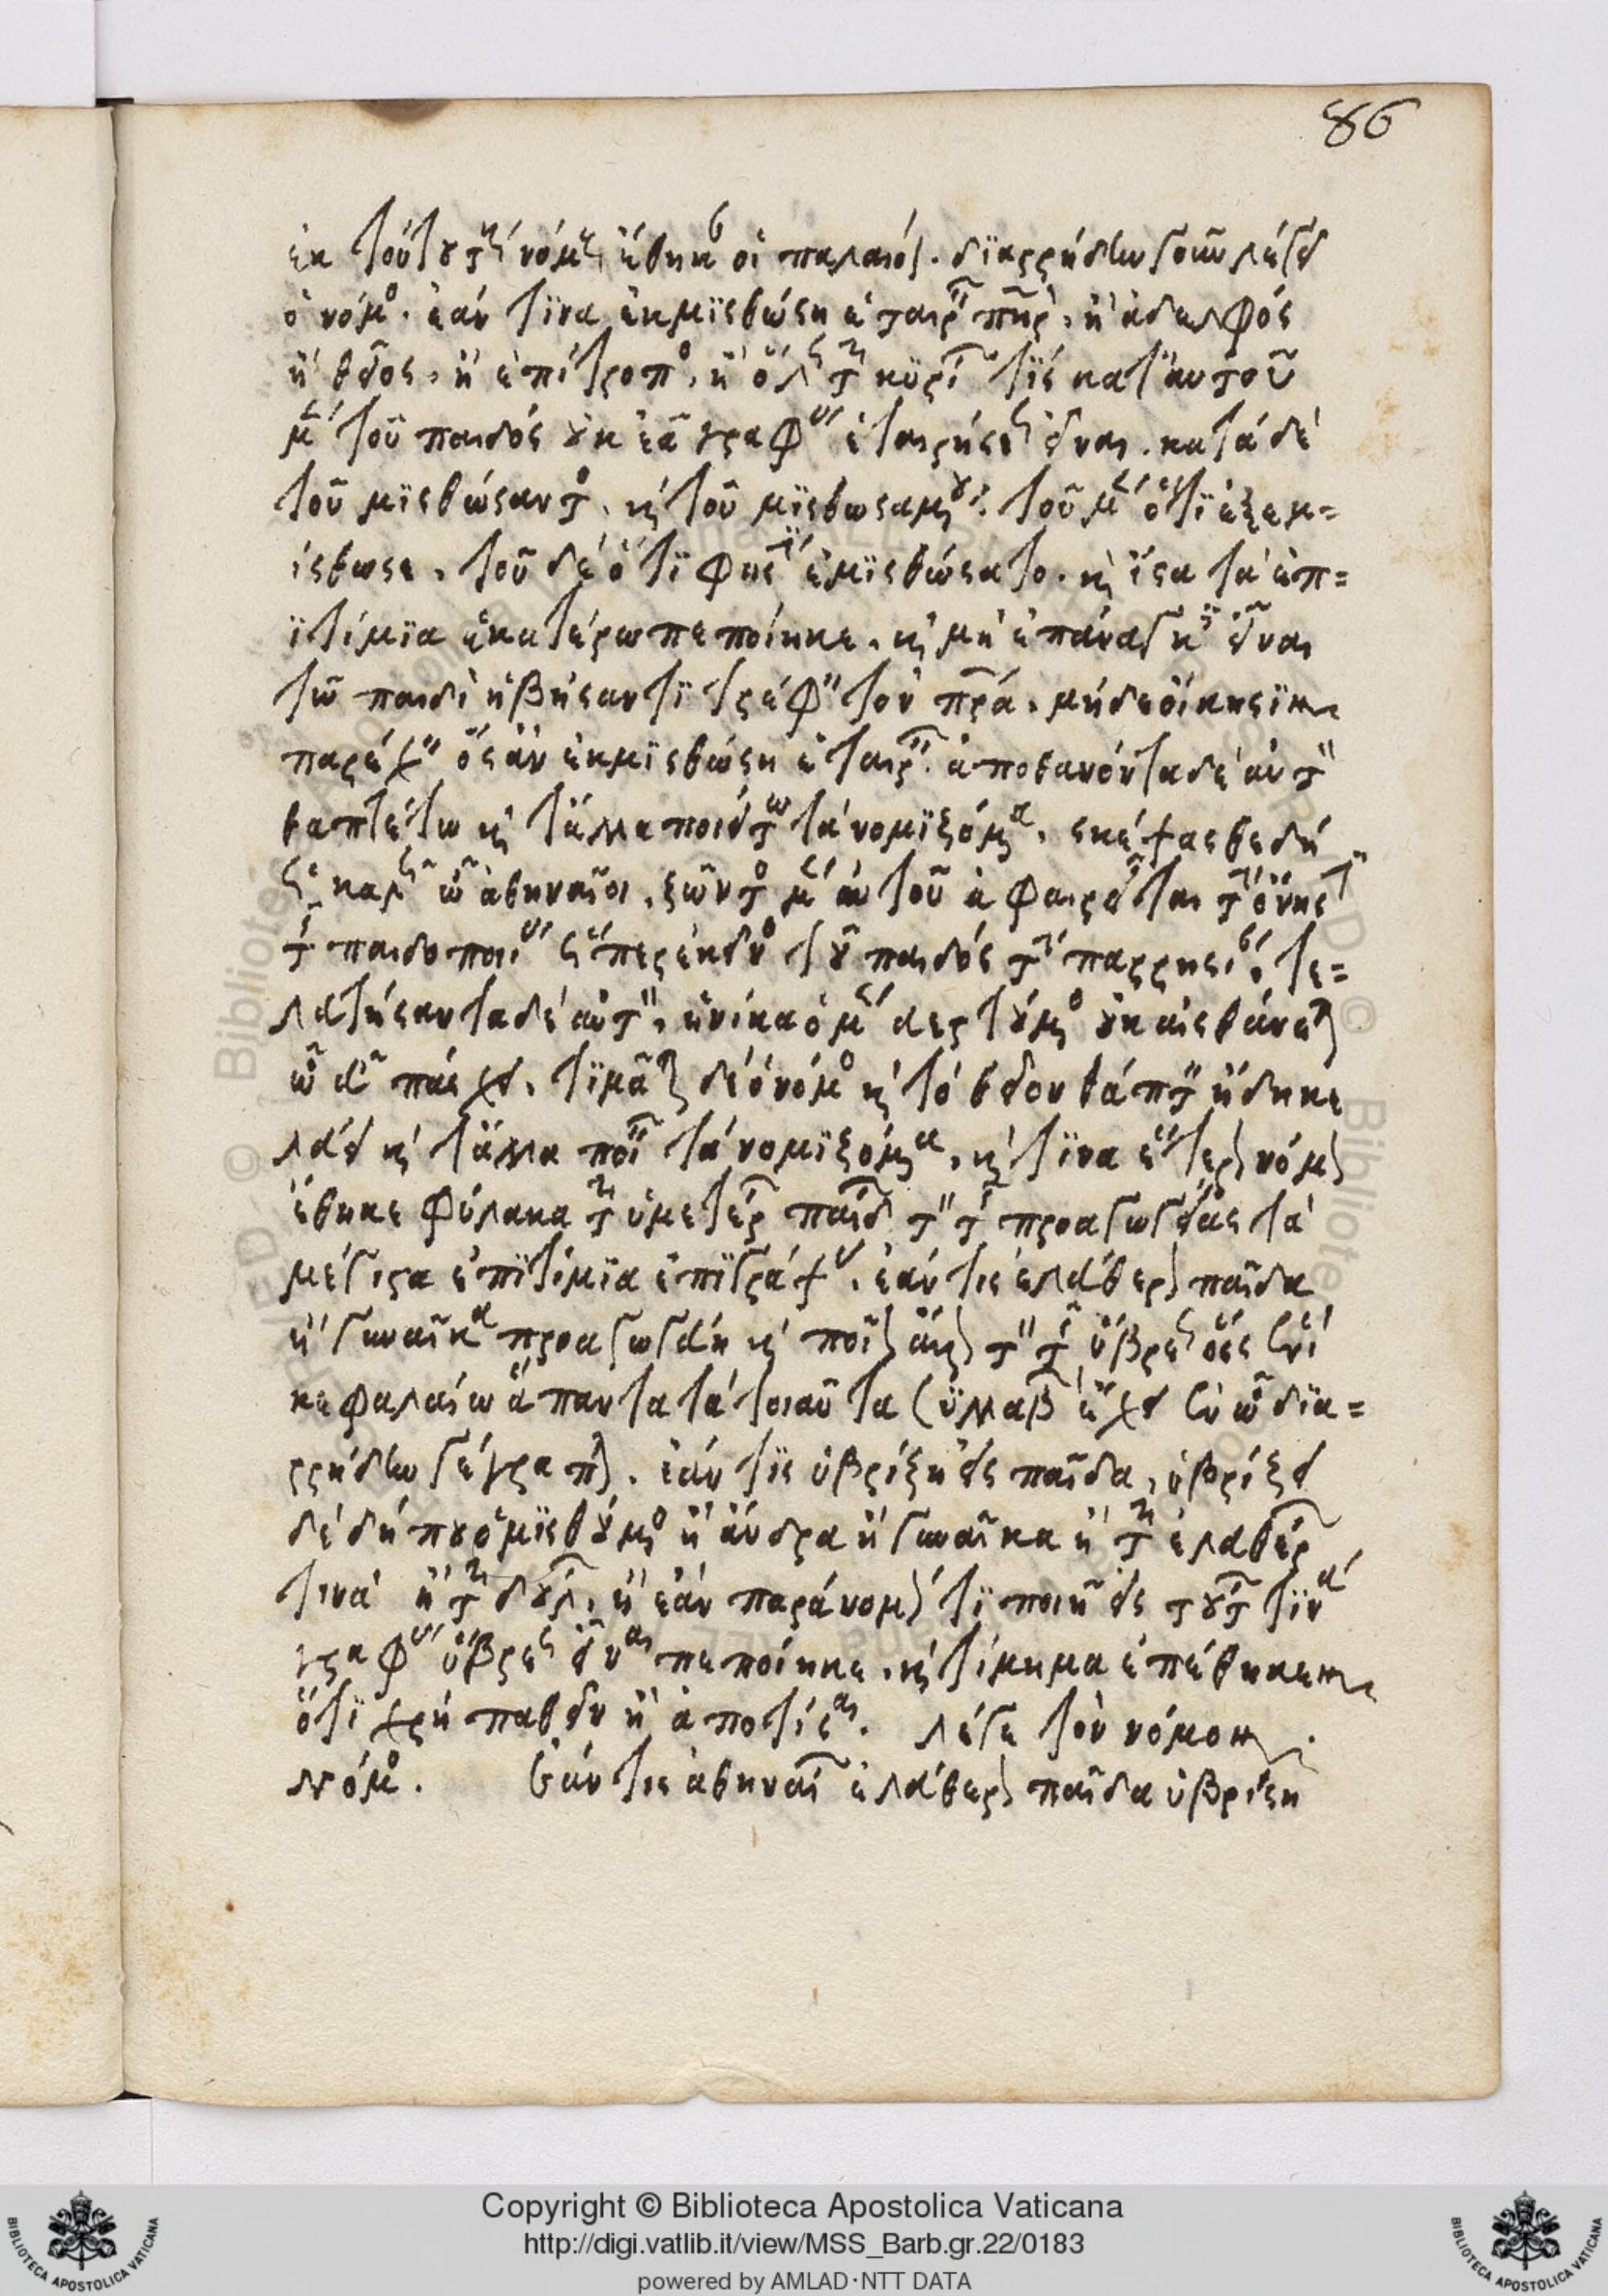 86
ἐκ τούτου τοὺς νόμους ἔθηκεν οἱ παλαιοί. διαρρήδην γοῦν λέγει
ὁ νόμος. ἐάν τινα ἐκμισθώση ἑταιρεῖν πατὴρ, ἢ ἀδελφὸς
ἢ θεῖος, ἢ ἐπίτροπος, ἢ ὅλως τῶν κυρίων τις κατ' αὐτοῦ
μὲν τοῦ παιδὸς οὐκ ἐᾶ γραφὴν ἑταιρήσεως εἶναι. κατὰ δὲ
τοῦ μισθώσαντος, καὶ τοῦ μισθωσαμένου. τοῦ μὲν ὅτι ἐξεμ=
ίσθωσε, τοῦ δὲ ὅτι φησὶν ἐμισθώσατο. καὶ ἴσα τὰ ἐπ=
ιτίμια ἑκατέρω πεποίηκε, καὶ μὴ ἐπάναγκες εἶναι
τῶ παιδὶ ἡβήσαντι τρέφειν τὸν πατέρα, μηδὲ οἴκησιν
παρέχειν ὃς ἂν ἐκμισθώση ἑταιρεῖν. ἀποθανόντα δὲ αὐτὸν
θαπτέτω καὶ τἄλλα ποιείτω τὰ νομιζόμενα. σκέψασθε δὴ
ὡς καλῶς ὦ ἀθηναῖοι, ζῶντος μὲν αὐτοῦ ἀφαιρεῖται τὴν ὄνησιν
τῆς παιδοποιίας ὥσπερ ἐκεῖνος τοῦ παιδὸς τὴν παρρησίαν, τε=
λευτήσαντα δὲ αὐτὸν, ἡνίκα ὁ μὲν εὐεργετούμενος οὐκ αἰσθάνεται
ὧν εὖ πάσχει, τιμᾶται δὲ ὁ νόμος καὶ τὸ θεῖον θάπτειν ἤδη κε
λεύει καὶ τἄλλα ποιεῖν τὰ νομιζόμενα, καὶ τίνα ἕτερον νόμον
ἔθηκε φύλακα τῶν ὑμετέρων παίδων τὸν τῆς προαγωγείας τὰ
μέγιστα ἐπιτίμια ἐπιγράψας. ἐάν τις ἐλεύθερον παῖδα
ἢ γυναῖκα προαγωγεύη καὶ ποῖον ἄλλον τὸν τῆς ὕβρεως ὃς ἑνὶ
κεφαλαίω ἅπαντα τὰ τοιαῦτα συλλαβὼν ἔχει ἐν ὧ δια=
ρρήδην γέγραπται. ἐάν τις ὑβρίζη εἰς παῖδα, ὑβρίζει
δὲ δή που ὁ μισθούμενος ἢ ἄνδρα ἢ γυναῖκα ἢ τῶν ἐλευθέρων
τινὰ ἢ τῶν δούλων, ἢ ἐὰν παράνομόν τι ποιῆ εἰς τούτων τινὰ
γραφὰς ὕβρεως εἶναι πεποίηκε, καὶ τίμημα ἐπέθηκεν
ὅτι χρὴ παθεῖν ἢ ἀποτίσαι. λέγε τὸν νόμον.
Νόμος. Ἐάν τις ἀθηναίων ἐλεύθερον παῖδα ὑβρίση
Copyright © Biblioteca Apostolica Vaticana
http://digi.vatlib.it/view/MSS_Barb.gr.22/0183
powered by AMLAD·NTT DATA